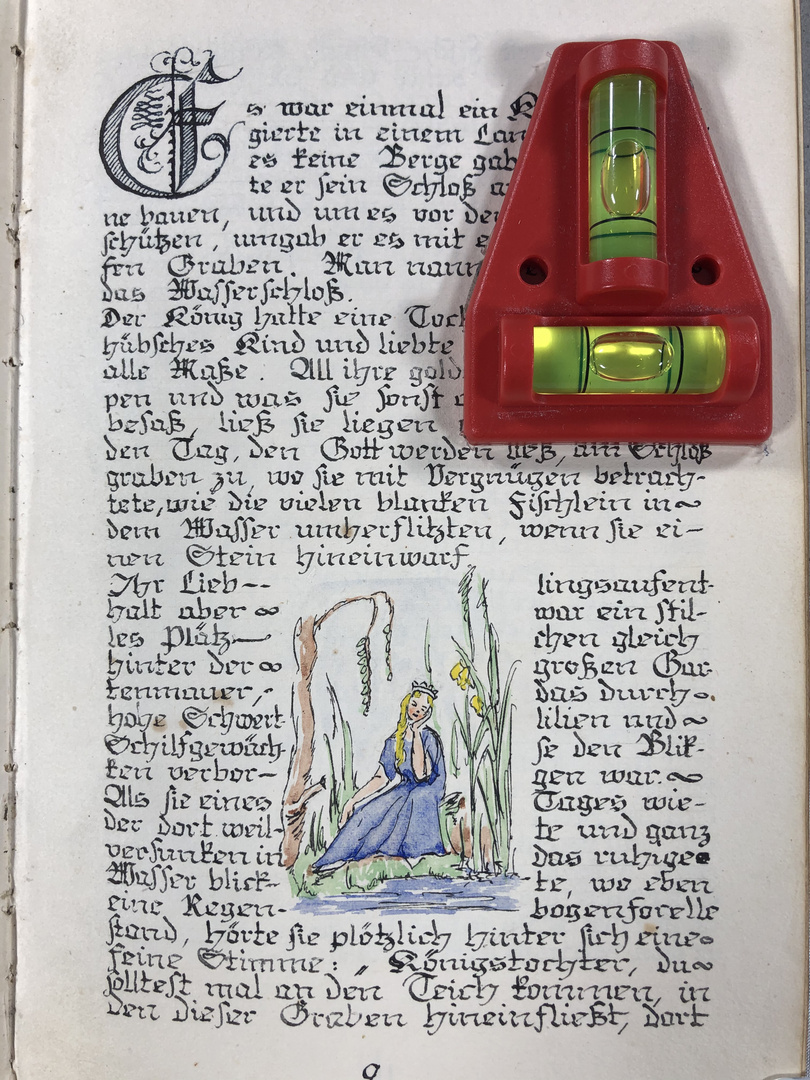 Es war einmal ein K
gierte in einem Lan
es keine Berge gab
te er sein Schloß a
ne bauen, und um es vor de
schützen, umgab er es mit e
fen Graben. Man nann
das Wasserschloß.
Der König hatte eine Toch
hübsches Kind und liebte
alle Maße. All ihre gold
pen und was sie sonst
besaß, ließ sie liegen
den Tag, den Gott werden ließ, am Schloß
graben zu, wo sie mit Vergnügen betrach-
tete, wie die vielen blanken Fischlein in~
dem Wasser umherflitzten, wenn sie ei-
nen Stein hineinwarf.
Ihr Lieb-- lingsaufent-
halt aber ~ war ein stil-
les Plätz- chen gleich
hinter der ~ großen Gar-
tenmauer, das durch-
hohe Schwert- lilien und ~
Schilfgewäch- se den Blik-
ken verbor- gen war. ~
Als sie eines Tages wie-
der dort weil- te und ganz
versunken in das ruhige
Wasser blick- te, wo eben
eine Regen- bogenforelle
stand, hörte sie plötzlich hinter sich eine
feine Stimme: „Königstochter, du~
solltest mal an den Teich kommen, in
den dieser Graben hineinfließt, dort
9